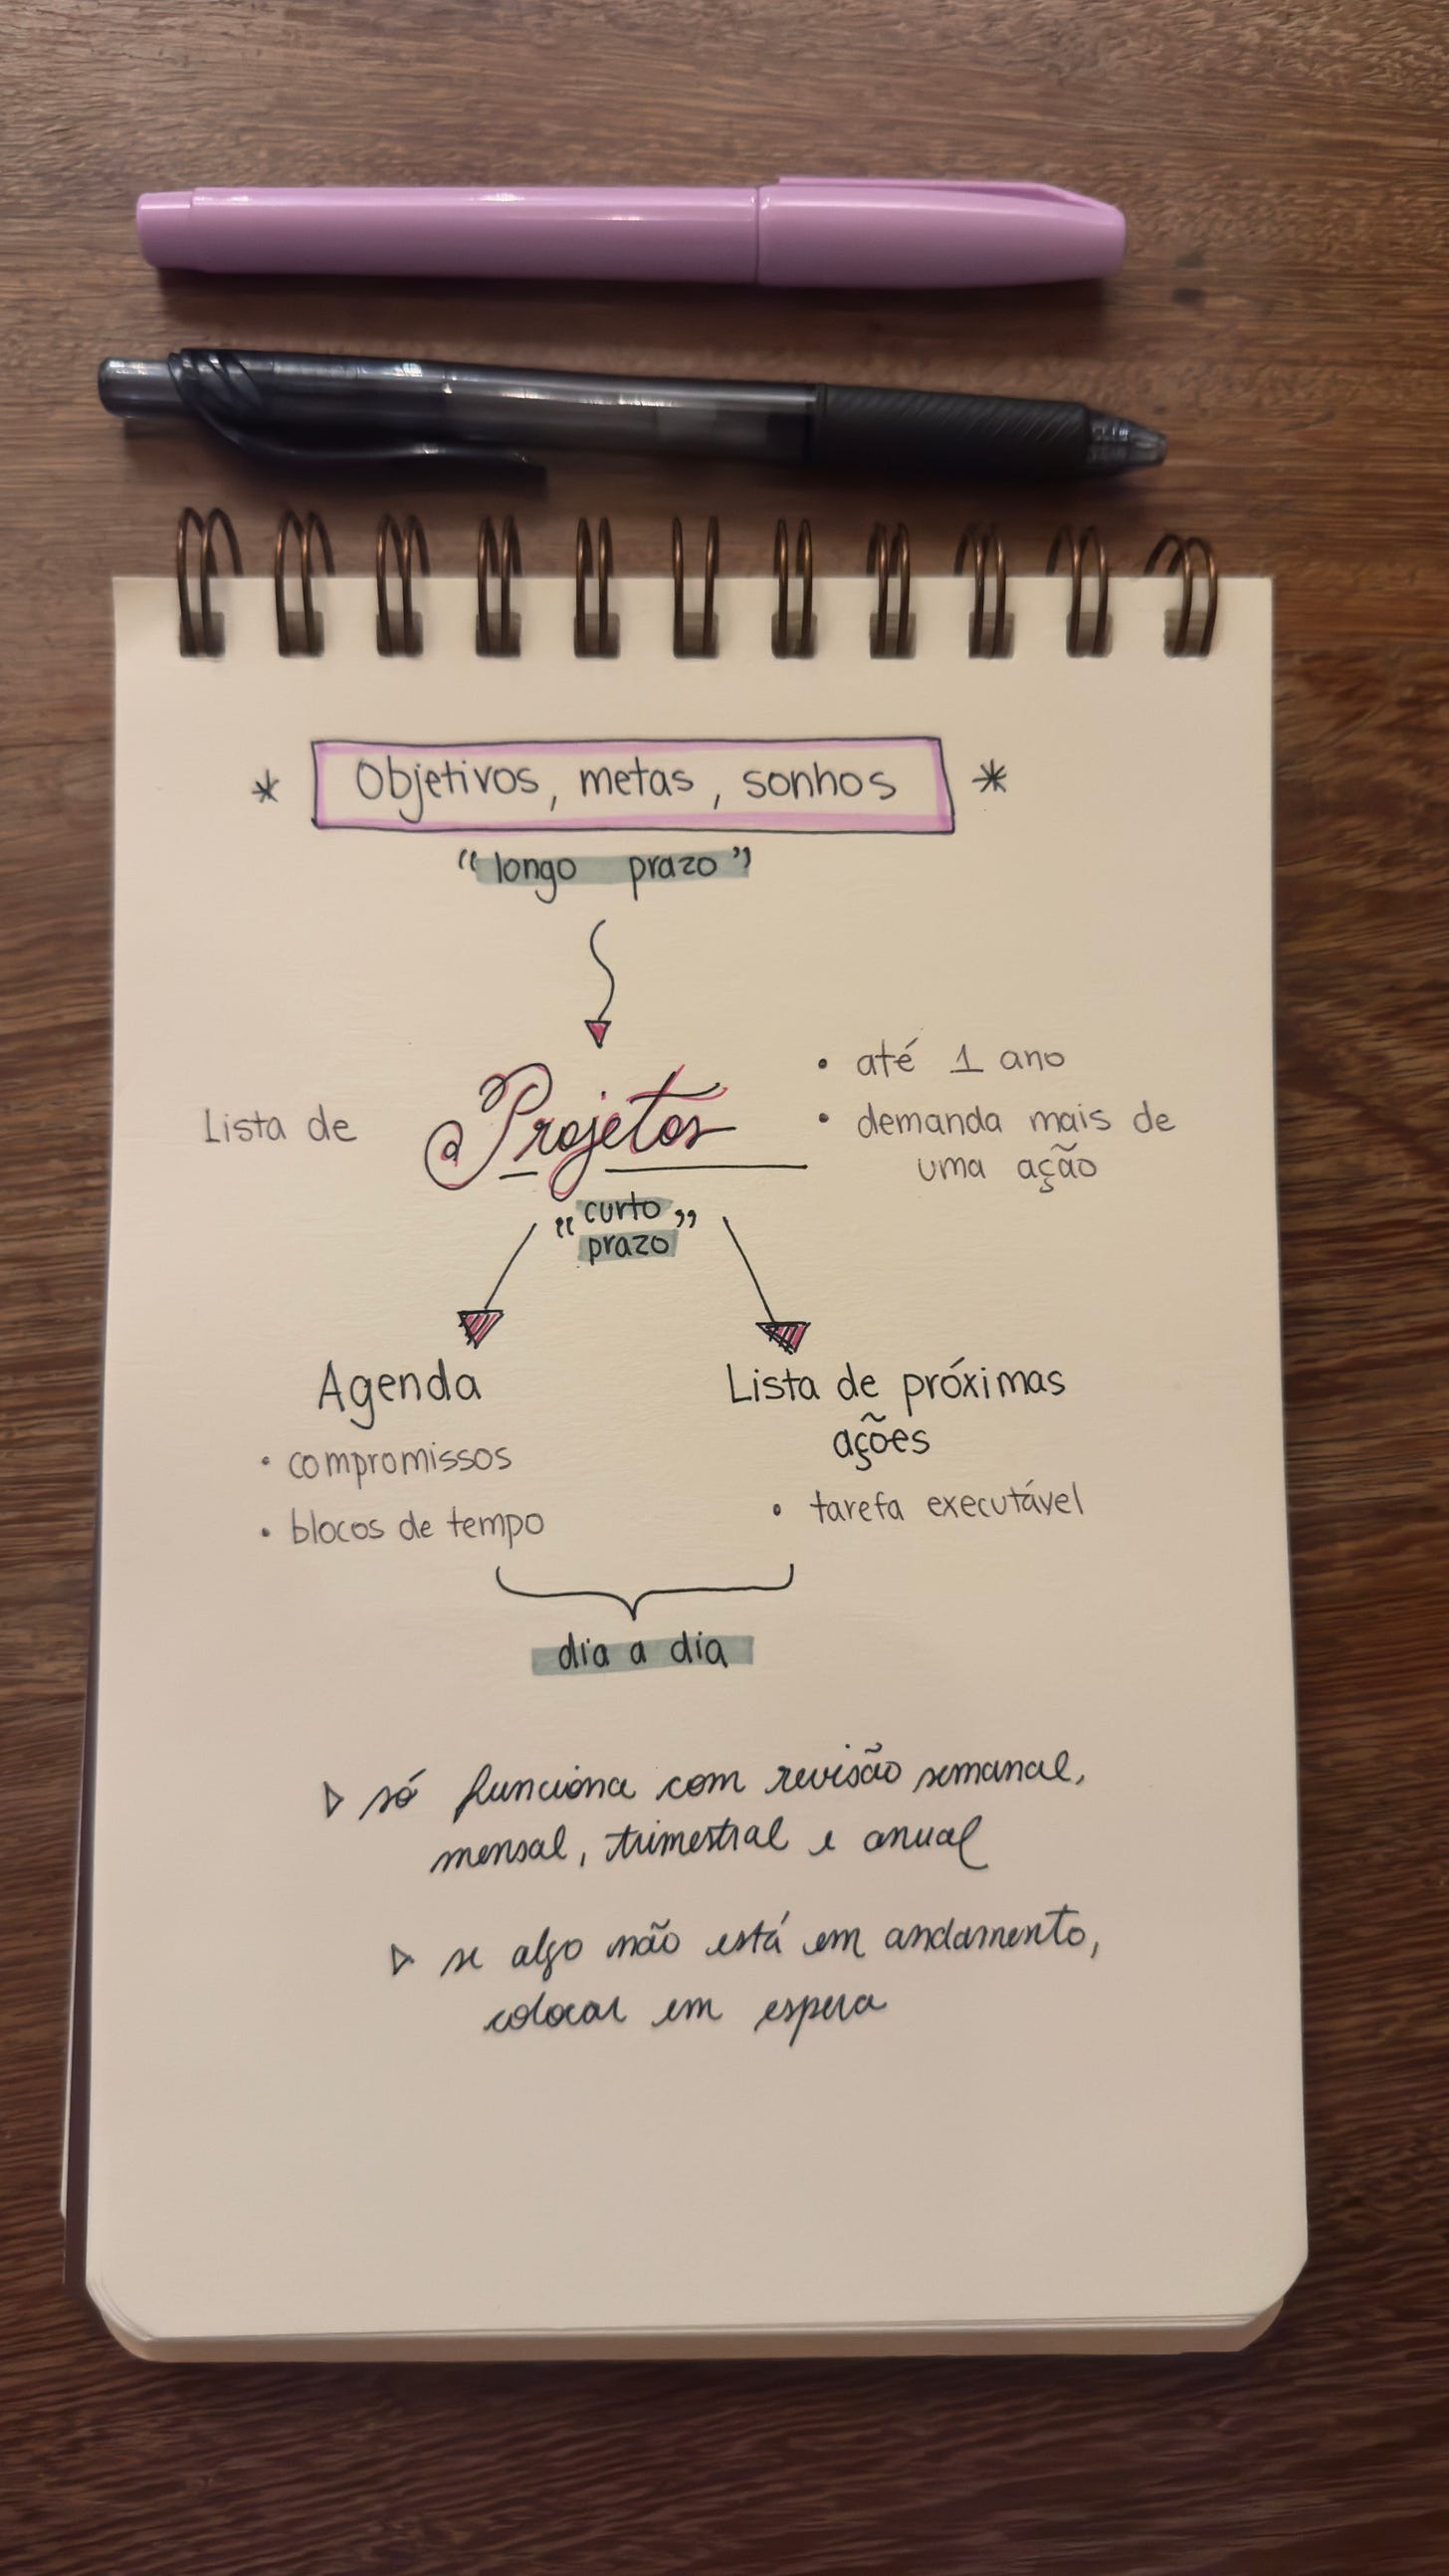 * Objetivos, metas, sonhos *
"longo prazo"
Lista de Projetos
• até 1 ano
• demanda mais de
uma ação
"curto
prazo"
Agenda
• compromissos
• blocos de tempo
Lista de próximas
ações
• tarefa executável
dia a dia
▷ só funciona com revisão semanal,
mensal, trimestral e anual
▷ se algo não está em andamento,
colocar em espera